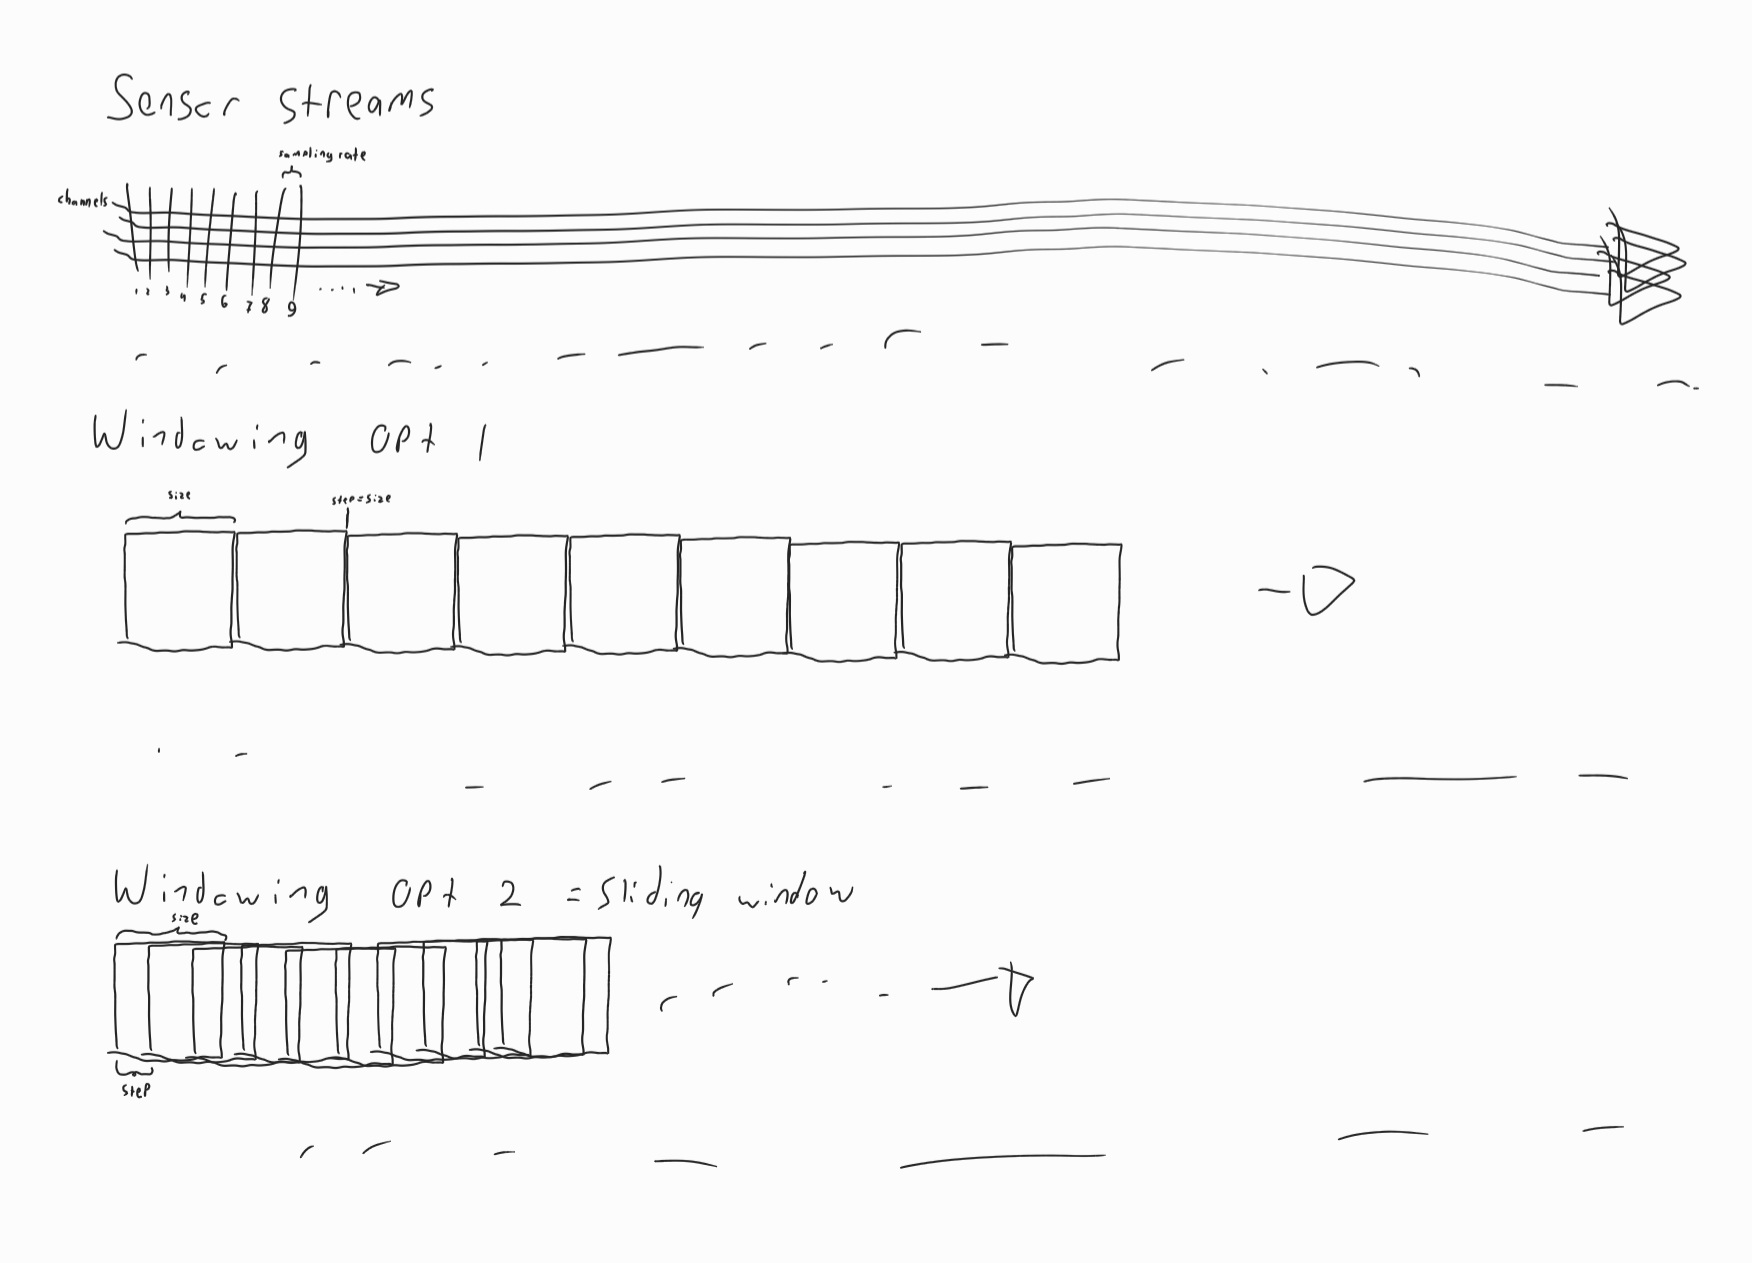 Sensor streams
sampling rate
channels
1 2 3 4 5 6 7 8 9
Windowing opt 1
size
step=size
Windowing opt 2 = sliding window
size
step